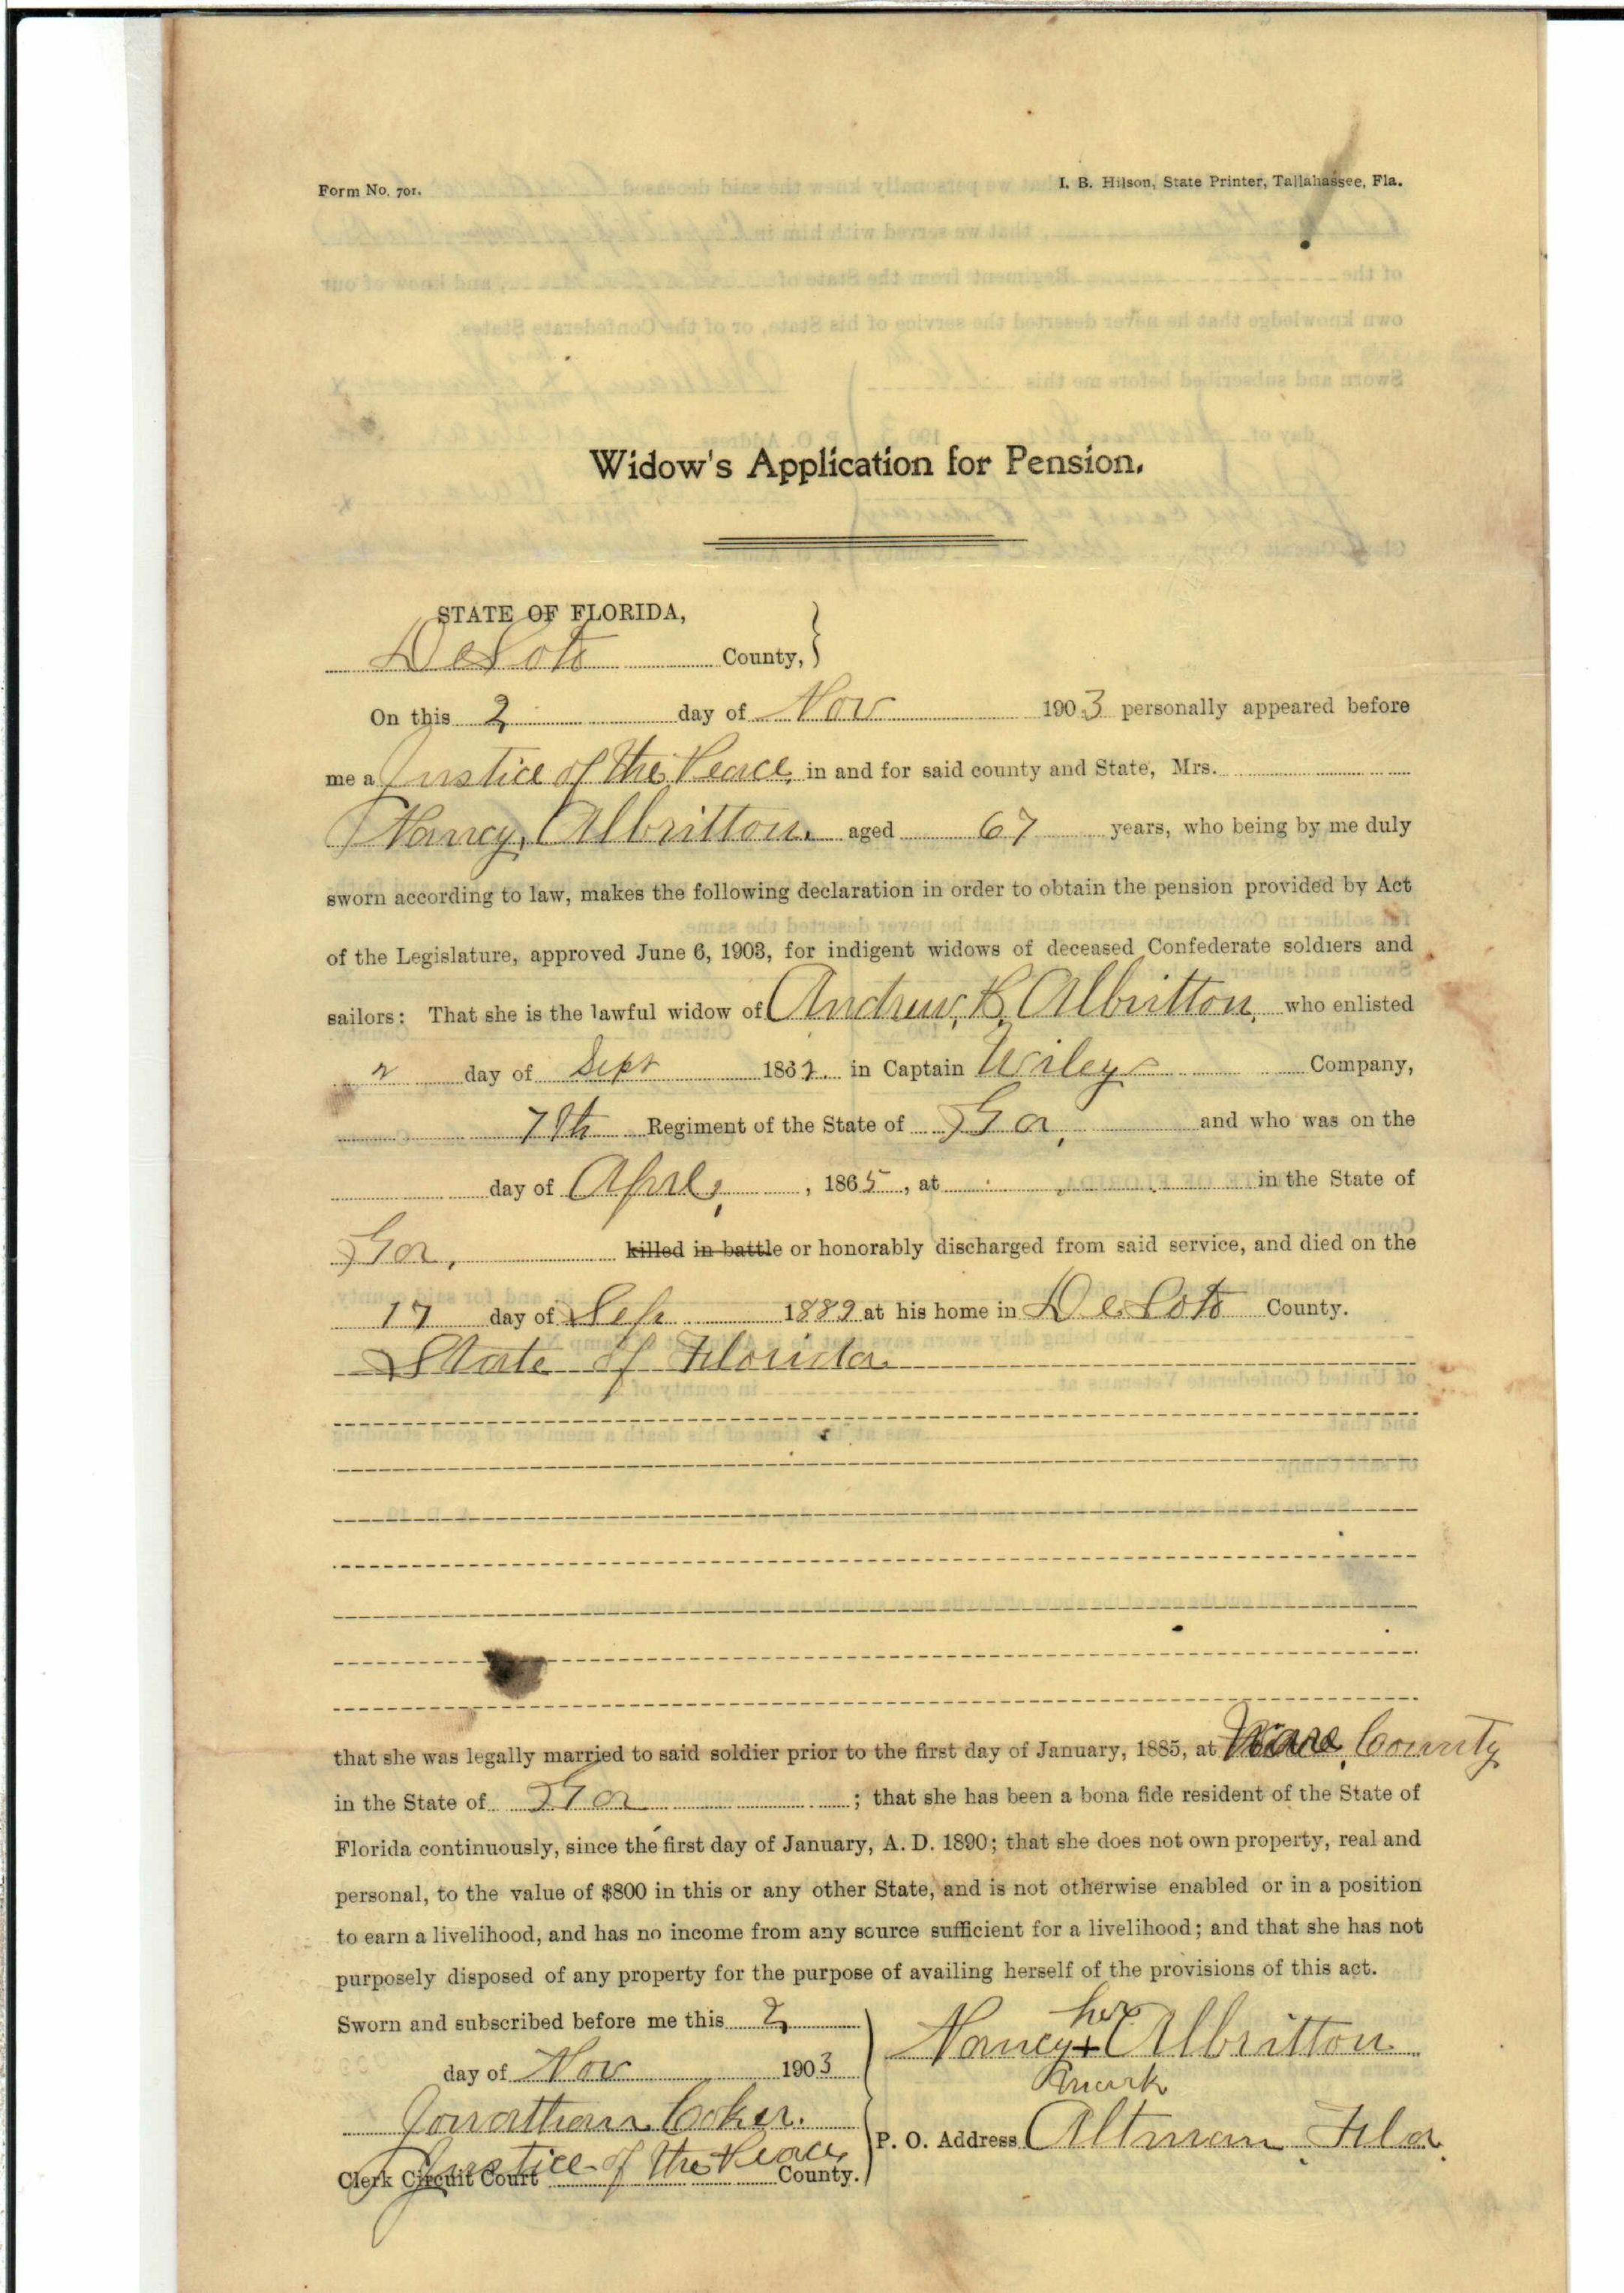 Form No. 701.
I. B. Hilson, State Printer, Tallahassee, Fla.
Widow's Application for Pension.
STATE OF FLORIDA,
DeSoto County,
On this 2 day of Nov 1903 personally appeared before
me a Justice of the Peace, in and for said county and State, Mrs.
Nancy, Albritton. aged 67 years, who being by me duly
sworn according to law, makes the following declaration in order to obtain the pension provided by Act
of the Legislature, approved June 6, 1903, for indigent widows of deceased Confederate soldiers and
sailors: That she is the lawful widow of Andrew, B, Albritton, who enlisted
2 day of Sept 1862 in Captain Wileys Company,
7th Regiment of the State of Ga, and who was on the
day of Aprl, , 1865, at in the State of
Ga, killed in battle or honorably discharged from said service, and died on the
17 day of Sep 1889 at his home in DeSoto County.
State of Florida
that she was legally married to said soldier prior to the first day of January, 1885, at Ware, County
in the State of Ga ; that she has been a bona fide resident of the State of
Florida continuously, since the first day of January, A. D. 1890; that she does not own property, real and
personal, to the value of $800 in this or any other State, and is not otherwise enabled or in a position
to earn a livelihood, and has no income from any source sufficient for a livelihood; and that she has not
purposely disposed of any property for the purpose of availing herself of the provisions of this act.
Sworn and subscribed before me this 2
day of Nov 1903
Jonathan Coker.
Justice of the Peace
Clerk Circuit Court County.
her
Nancy + Albritton
mark
P. O. Address Altman, Fla.